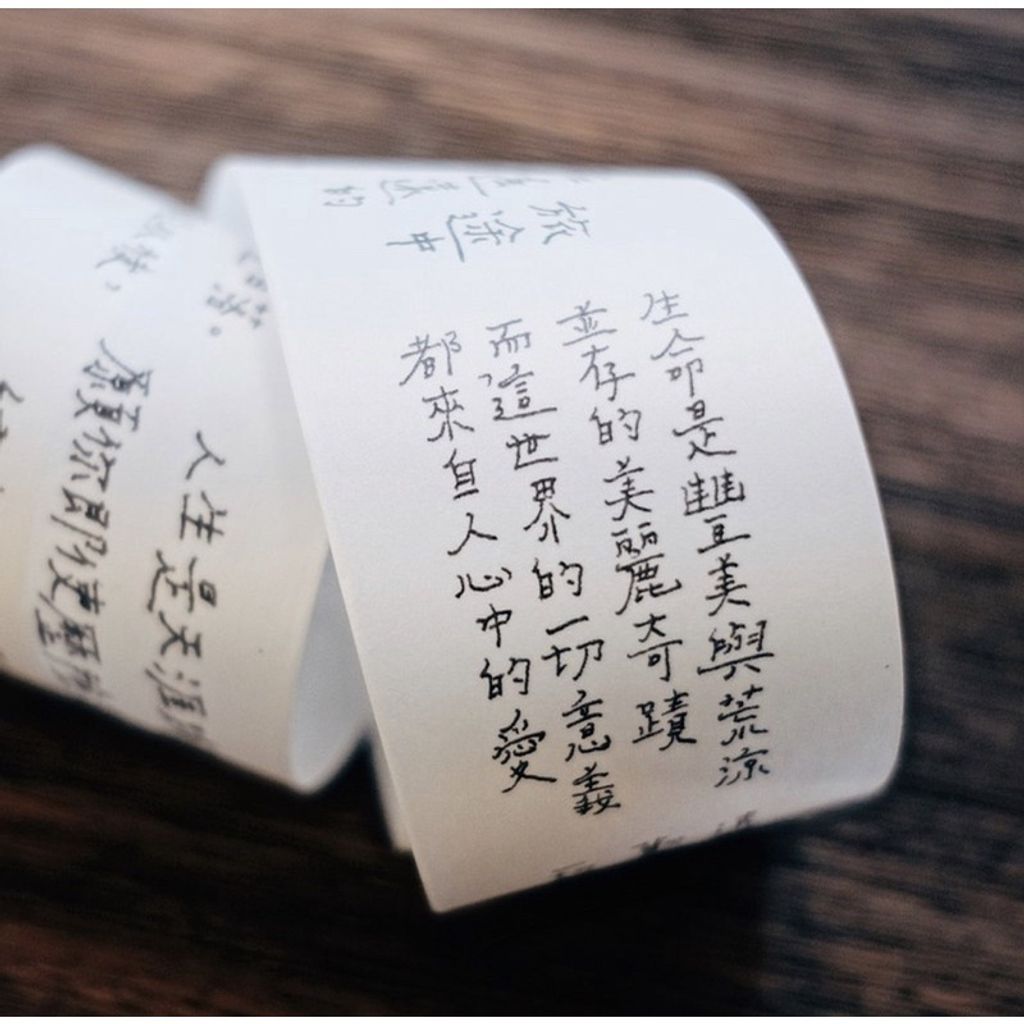 旅途中
生命是豐美與荒涼
並存的美麗奇蹟
而這世界的一切意義
都來自人心中的愛
人生是天涯
願你即使歷